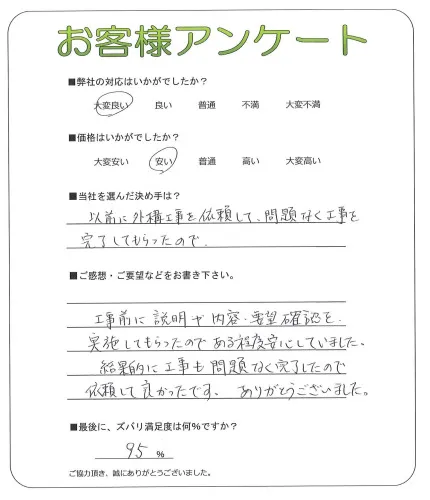 お客様アンケート
■弊社の対応はいかがでしたか？
大変良い 良い 普通 不満 大変不満
■価格はいかがでしたか？
大変安い 安い 普通 高い 大変高い
■当社を選んだ決め手は？
以前に外構工事を依頼して、問題なく工事を
完了してもらったので、
■ご感想・ご要望などをお書き下さい。
工事前に説明や内容・要望確認を、
実施してもらったのである程度安心していました、
結果的に工事も問題なく完了したので
依頼して良かったです、ありがとうございました。
■最後に、ズバリ満足度は何％ですか？
95 ％
ご協力頂き、誠にありがとうございました。